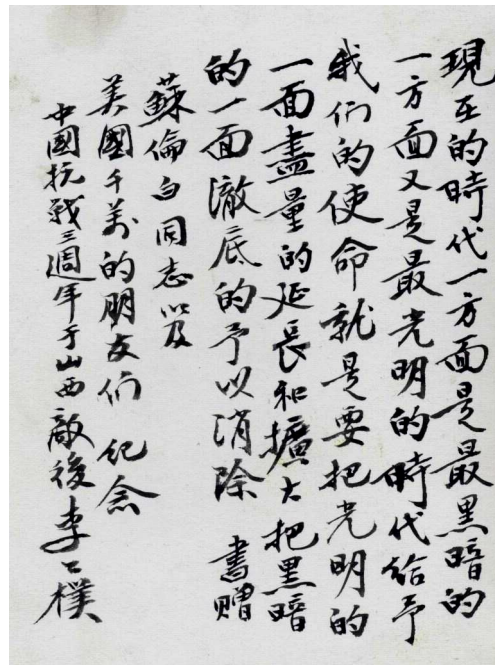 現在的時代一方面是最黑暗的
一方面又是最光明的時代給予
我们的使命就是要把光明的
一面盡量的延長和擴大把黑暗
的一面澈底的予以消除 書贈
蘇倫白同志以及
美國千万的朋友们 纪念
中國抗战三週年于山西敵後李公樸